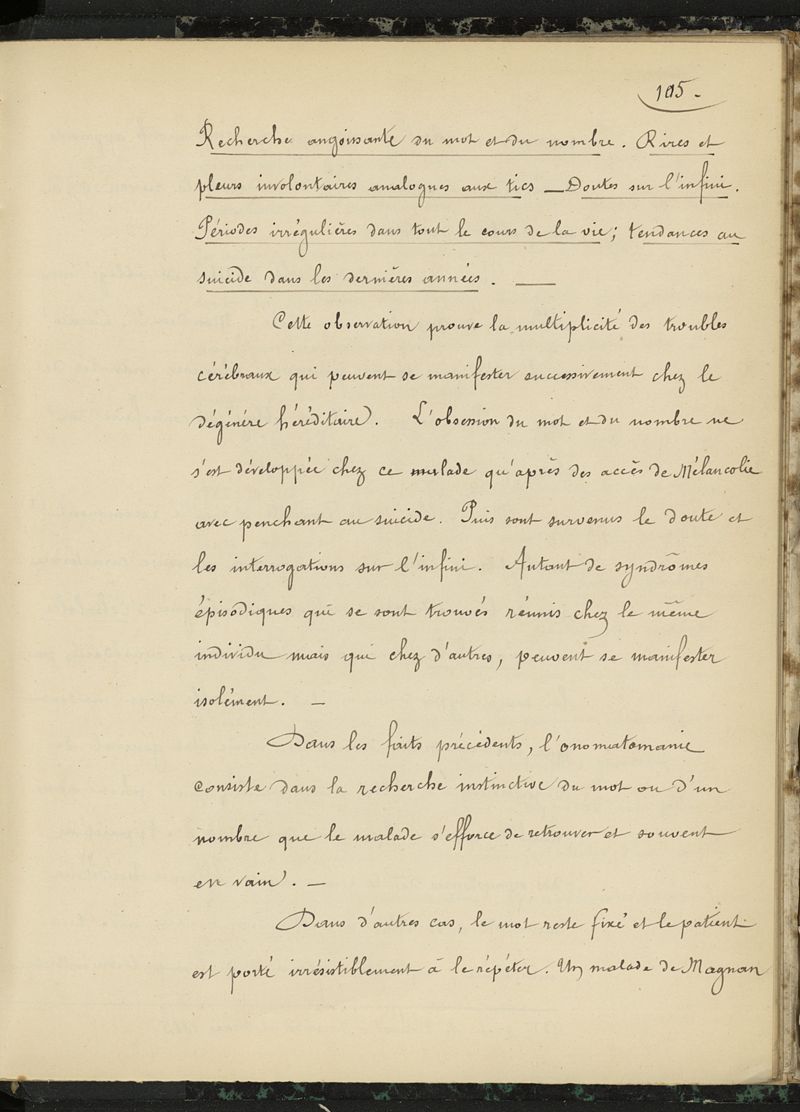 105.
Recherche angoissante du mot et du nombre. Rires et
pleurs involontaires analogues aux tics — Doutes sur l'infini.
Périodes irrégulières dans tout le cours de la vie; tendances au
suicide dans les dernières années. —
Cette observation prouve la multiplicité des troubles
cérébraux qui peuvent se manifester successivement chez le
dégénéré héréditaire. L'obsession du mot et du nombre ne
s'est développée chez ce malade qu'après des accès de Mélancolie
avec penchant au suicide. Puis sont survenus le doute et
les interrogations sur l'infini. Autant de syndrômes
épisodiques qui se sont trouvés réunis chez le même
individu mais qui chez d'autres, peuvent se manifester
isolément. —
Dans les faits précédents, l'onomatomanie
consiste dans la recherche instinctive du mot ou d'un
nombre que le malade s'efforce de retrouver et souvent
en vain. —
Dans d'autres cas, le mot reste fixé et le patient
est porté irrésistiblement à le répéter. Un malade de Magnan